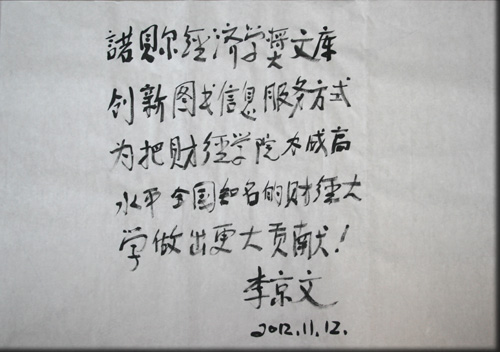 諾貝尔經济学奬文库
创新图书信息服务方式
为把财经学院办成高
水平全国知名的财经大
学做出更大贡献！
李京文
2012.11.12.